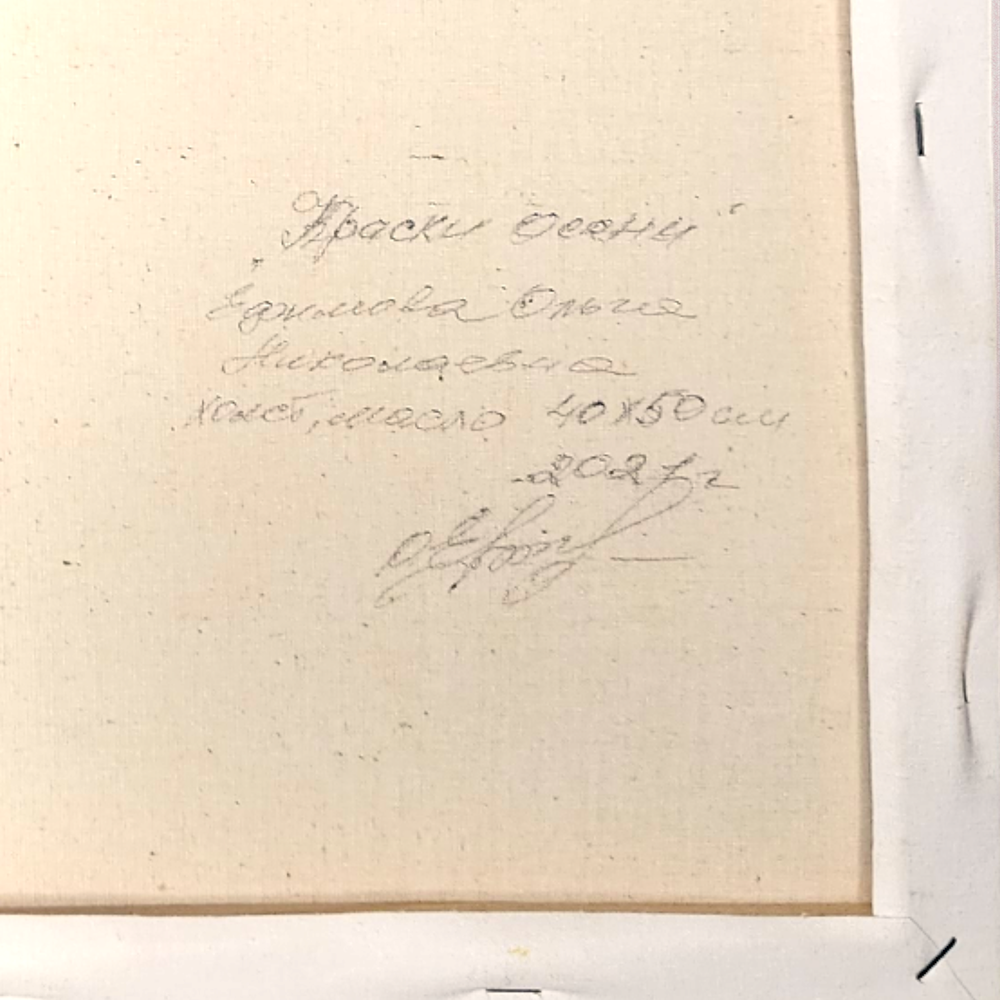 „Краски осени"
Ефимова Ольга
Николаевна
холст, масло 40х50см
2021г